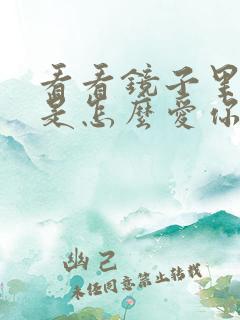 看看鏡子里
是怎麼愛你
幽己
未经同意禁止转载